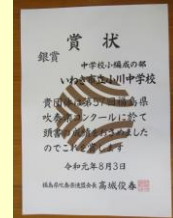 賞状
銀賞
中学校小編成の部
いわき市立小川中学校
貴団体は第57回福島県
吹奏楽コンクールに於て
頭書の成績をおさめました
のでこれを賞します
令和元年8月3日
福島県吹奏楽連盟会長 高城俊春